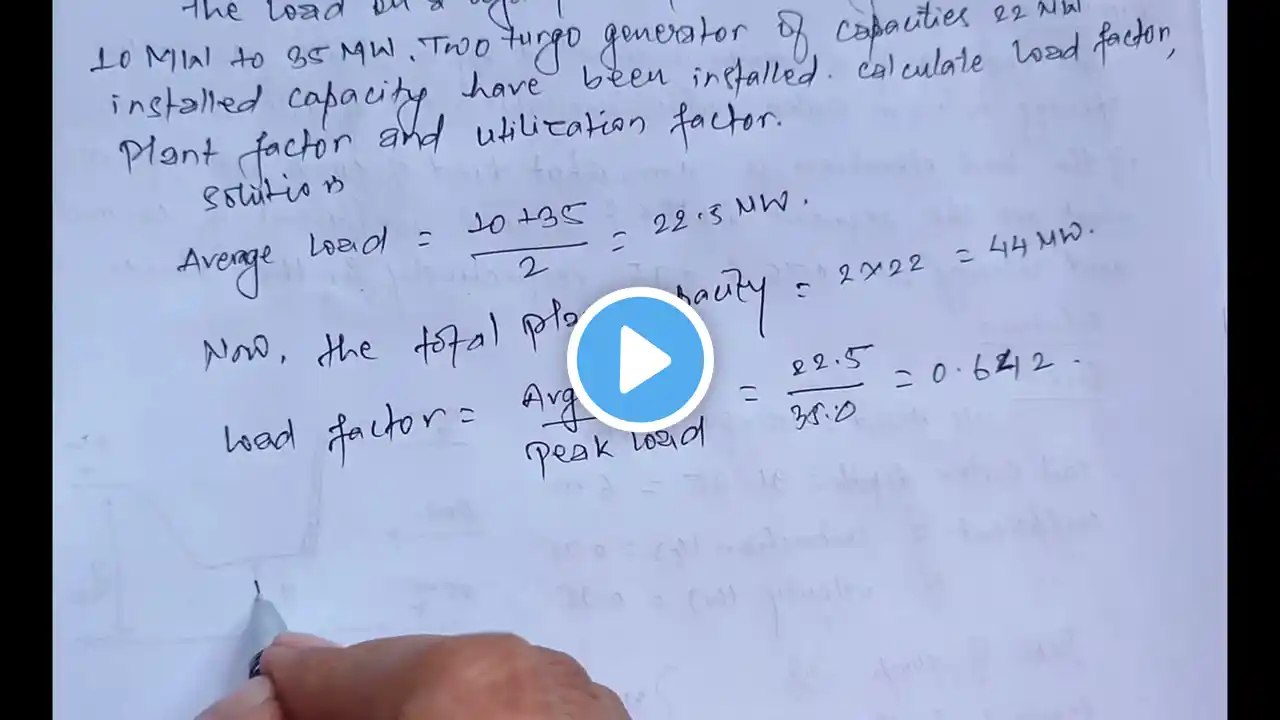 the load on a
10 MW to 35 MW. Two turgo generator of capacities 22 MW
installed capacity have been installed. calculate load factor,
plant factor and utilization factor.
solution
Average load = 10+35 / 2 = 22.5 MW.
Now, the total capacity = 2×22 = 44 MW.
load factor = Avg / peak load = 22.5 / 35.0 = 0.642.